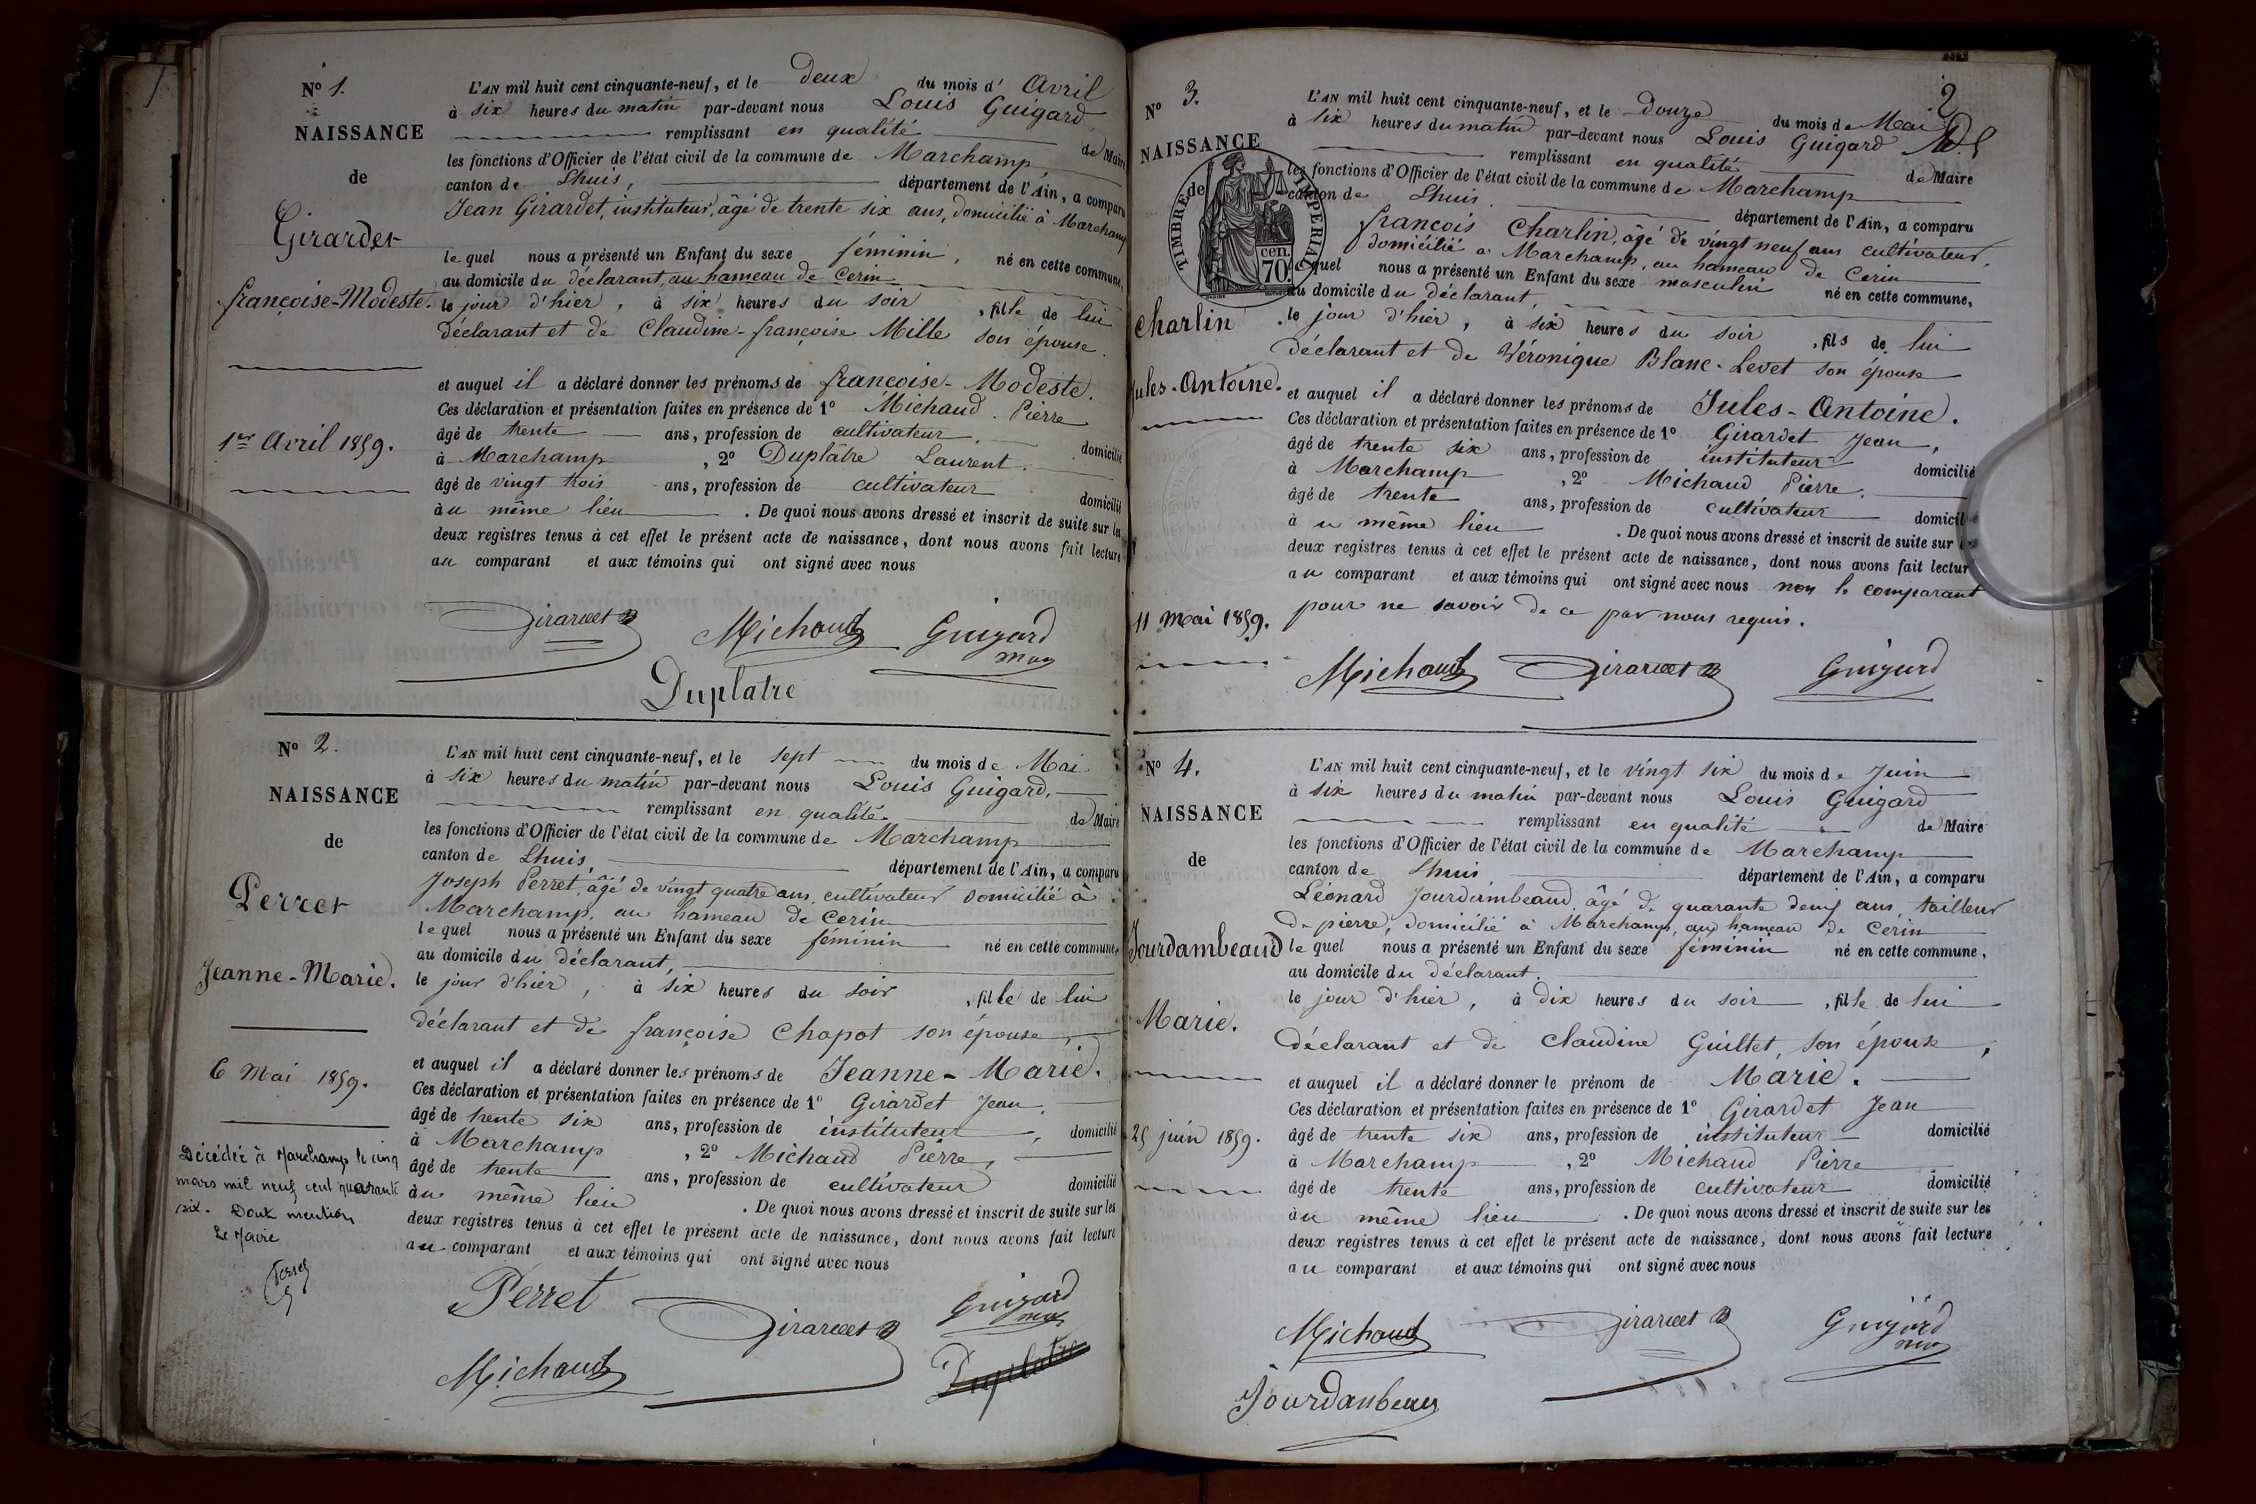 N° 1.
NAISSANCE
de
Girardet
françoise-Modeste.
1er Avril 1859.
L'AN mil huit cent cinquante-neuf, et le deux du mois d' Avril
à six heures du matin par-devant nous Louis Guigard
remplissant en qualité de Maire
les fonctions d'Officier de l'état civil de la commune de Marchamp
canton de Lhuis, département de l'Ain, a comparu
Jean Girardet, instituteur, âgé de trente six ans, domicilié à Marchamp
le quel nous a présenté un Enfant du sexe féminin, né en cette commune,
au domicile du déclarant, au hameau de Cerin
le jour d'hier, à six heures du soir, fille de lui
déclarant et de Claudine-françoise Mille son épouse.
et auquel il a déclaré donner les prénoms de françoise-Modeste.
Ces déclaration et présentation faites en présence de 1° Michaud Pierre
âgé de trente ans, profession de cultivateur, domicilié
à Marchamp, 2° Duplâtre Laurent.
âgé de vingt trois ans, profession de cultivateur domicilié
au même lieu. De quoi nous avons dressé et inscrit de suite sur les
deux registres tenus à cet effet le présent acte de naissance, dont nous avons fait lecture
au comparant et aux témoins qui ont signé avec nous
Girardet Michaud Guigard
Duplatre
N° 2.
NAISSANCE
de
Perret
Jeanne-Marie.
6 Mai 1859.
Décédée à Marchamp le cinq
mars mil neuf cent quarante
six. Dont mention
Le Maire
L'AN mil huit cent cinquante-neuf, et le sept du mois de Mai
à six heures du matin par-devant nous Louis Guigard,
remplissant en qualité de Maire
les fonctions d'Officier de l'état civil de la commune de Marchamp
canton de Lhuis, département de l'Ain, a comparu
Joseph Perret, âgé de vingt quatre ans, cultivateur domicilié à
Marchamp, au hameau de Cerin
le quel nous a présenté un Enfant du sexe féminin né en cette commune,
au domicile du déclarant,
le jour d'hier, à six heures du soir, fille de lui
déclarant et de françoise Chapot son épouse,
et auquel il a déclaré donner les prénoms de Jeanne-Marie.
Ces déclaration et présentation faites en présence de 1° Girardet Jean,
âgé de trente six ans, profession de instituteur, domicilié
à Marchamp, 2° Michaud Pierre,
âgé de trente ans, profession de cultivateur domicilié
au même lieu. De quoi nous avons dressé et inscrit de suite sur les
deux registres tenus à cet effet le présent acte de naissance, dont nous avons fait lecture
au comparant et aux témoins qui ont signé avec nous
Perret Girardet Guigard
Michaud Duplatre
2
N° 3.
NAISSANCE
de
TIMBRE IMPERIAL
70 cen.
Charlin
Jules-Antoine.
11 Mai 1859.
L'AN mil huit cent cinquante-neuf, et le douze du mois de Mai
à six heures du matin par-devant nous Louis Guigard
remplissant en qualité de Maire
les fonctions d'Officier de l'état civil de la commune de Marchamp
canton de Lhuis. département de l'Ain, a comparu
françois Charlin, âgé de vingt neuf ans cultivateur,
domicilié à Marchamp, au hameau de Cerin
lequel nous a présenté un Enfant du sexe masculin né en cette commune,
au domicile du déclarant,
le jour d'hier, à six heures du soir, fils de lui
déclarant et de Véronique Blanc-Levet son épouse
et auquel il a déclaré donner les prénoms de Jules-Antoine.
Ces déclaration et présentation faites en présence de 1° Girardet Jean,
âgé de trente six ans, profession de instituteur domicilié
à Marchamp, 2° Michaud Pierre.
âgé de trente ans, profession de cultivateur domicil
au même lieu. De quoi nous avons dressé et inscrit de suite sur les
deux registres tenus à cet effet le présent acte de naissance, dont nous avons fait lectur
au comparant et aux témoins qui ont signé avec nous non le comparant
pour ne savoir de ce par nous requis.
Michaud Girardet Guigard
N° 4.
NAISSANCE
de
Jourdambeaud
Marie.
25 juin 1859.
L'AN mil huit cent cinquante-neuf, et le vingt six du mois de Juin
à six heures du matin par-devant nous Louis Guigard
remplissant en qualité de Maire
les fonctions d'Officier de l'état civil de la commune de Marchamp
canton de Lhuis département de l'Ain, a comparu
Léonard Jourdambeaud, âgé de quarante deux ans, tailleur
de pierre, domicilié à Marchamp, au hameau de Cerin
le quel nous a présenté un Enfant du sexe féminin né en cette commune,
au domicile du déclarant.
le jour d'hier, à dix heures du soir, fille de lui
déclarant et de Claudine Guillet, son épouse,
et auquel il a déclaré donner le prénom de Marie.
Ces déclaration et présentation faites en présence de 1° Girardet Jean
âgé de trente six ans, profession de instituteur domicilié
à Marchamp, 2° Michaud Pierre
âgé de trente ans, profession de cultivateur domicilié
au même lieu. De quoi nous avons dressé et inscrit de suite sur les
deux registres tenus à cet effet le présent acte de naissance, dont nous avons fait lecture
au comparant et aux témoins qui ont signé avec nous
Michaud Girardet Guigard
Jourdanbeau